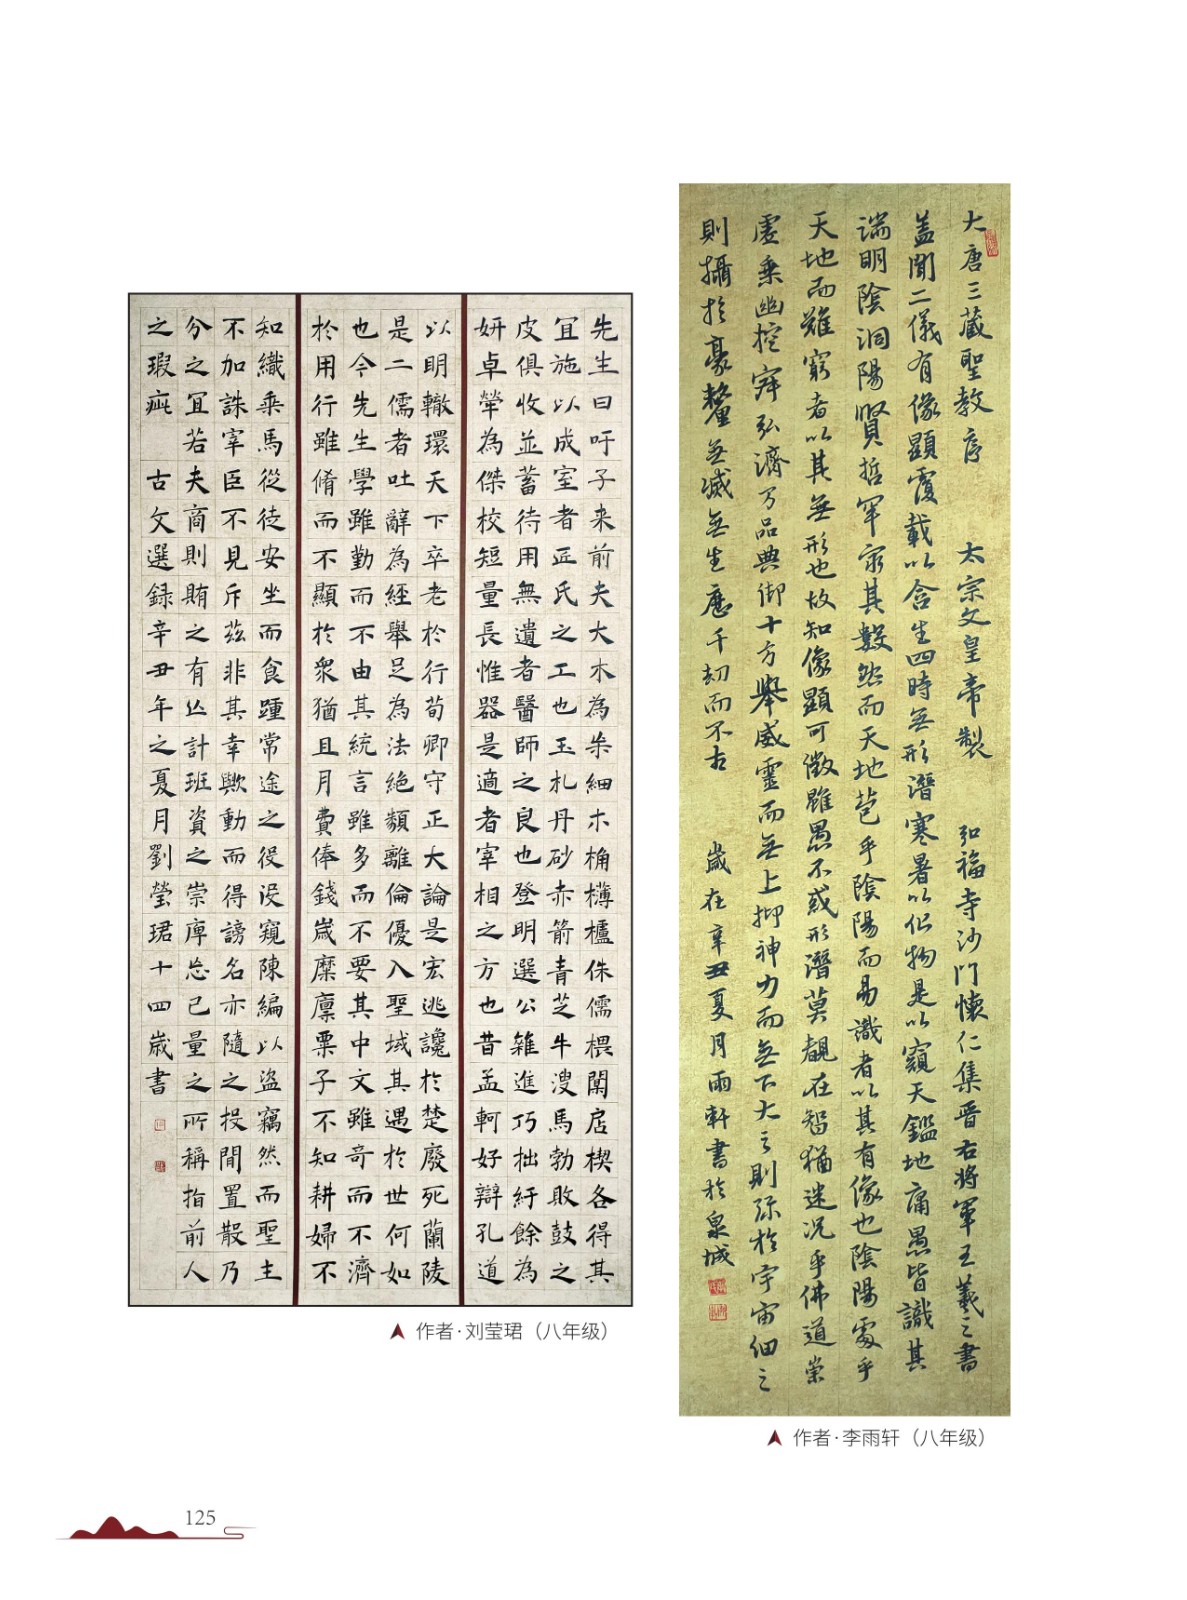 先生曰吁子来前夫大木為杗細木桷欂櫨侏儒椳闑扂楔各得其
宜施以成室者匠氏之工也玉札丹砂赤箭青芝牛溲馬勃敗鼓之
皮俱收並蓄待用無遺者醫師之良也登明選公雜進巧拙紆餘為
妍卓犖為傑校短量長惟器是適者宰相之方也昔孟軻好辯孔道
以明轍環天下卒老於行荀卿守正大論是宏逃讒於楚廢死蘭陵
是二儒者吐辭為經舉足為法絕類離倫優入聖域其遇於世何如
也今先生學雖勤而不由其統言雖多而不要其中文雖奇而不濟
於用行雖脩而不顯於衆猶且月費俸錢歲糜廩粟子不知耕婦不
知織乘馬從徒安坐而食踵常途之役役窺陳編以盜竊然而聖主
不加誅宰臣不見斥茲非其幸歟動而得謗名亦隨之投閒置散乃
分之宜若夫商則賄之有亡計班資之崇庳忘己量之所稱指前人
之瑕疵 古文選録辛丑年之夏月劉瑩珺十四歲書
作者·刘莹珺（八年级）
大唐三藏聖教序 太宗文皇帝製 弘福寺沙門懷仁集晉右將軍王羲之書
蓋聞二儀有像顯覆載以含生四時無形潛寒暑以化物是以窺天鑑地庸愚皆識其
端明陰洞陽賢哲罕窮其數然而天地苞乎陰陽而易識者以其有像也陰陽處乎
天地而難窮者以其無形也故知像顯可徵雖愚不惑形潛莫覩在智猶迷况乎佛道崇
虛乘幽控寂弘濟万品典御十方舉威靈而無上抑神力而無下大之則弥於宇宙細之
則攝於豪釐無滅無生歷千劫而不古 歲在辛丑夏月雨軒書於泉城
作者·李雨轩（八年级）
125